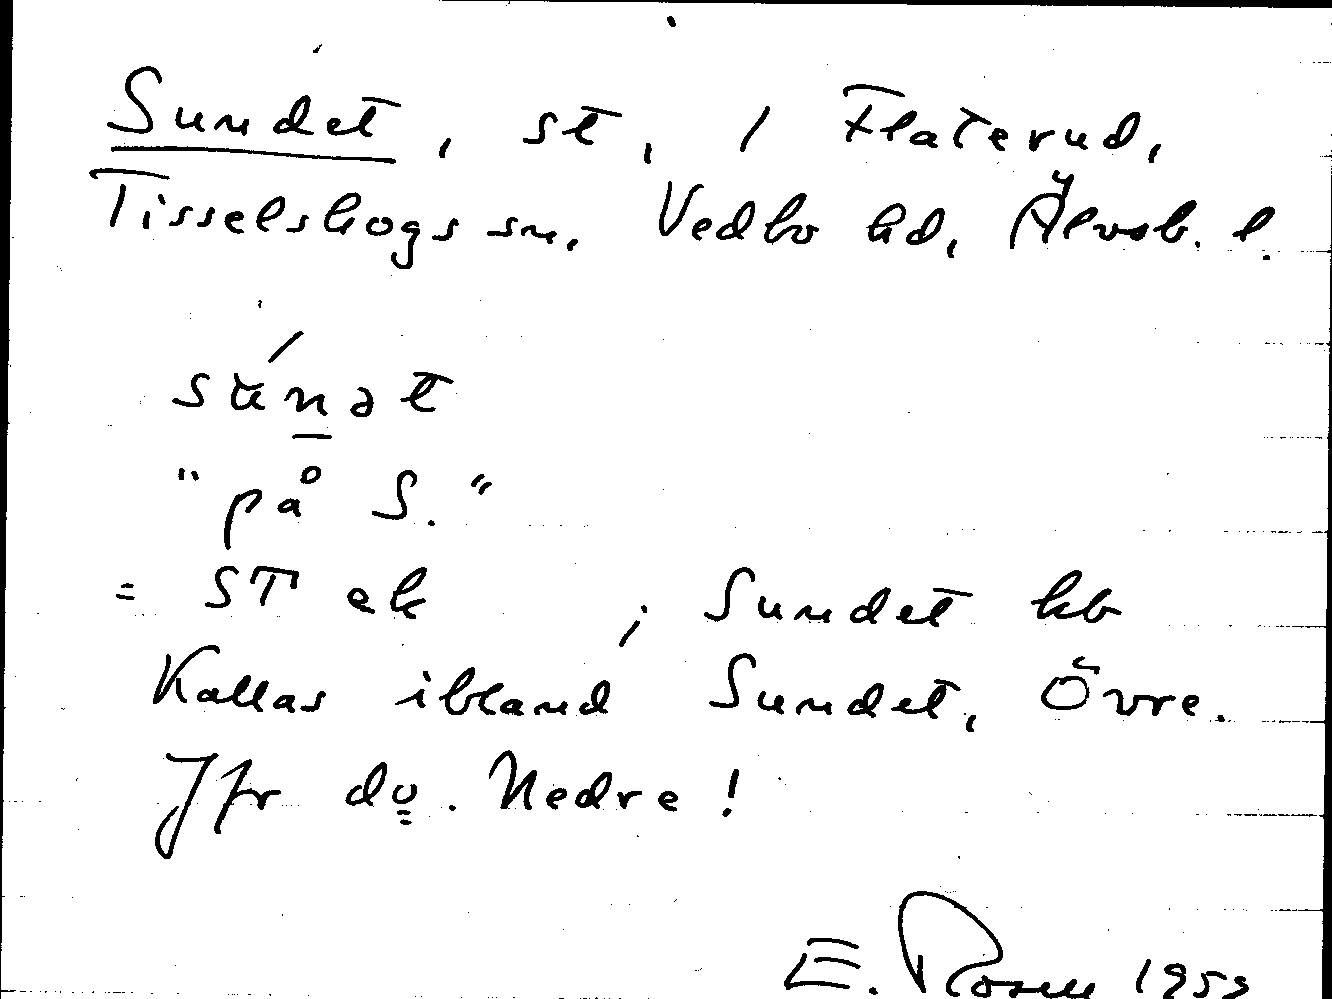 Sundet, st, 1 Flaterud,
Tisselskogs sn, Vedbo hd, Älvsb. l.
súnət
"på S."
= ST ek ; Sundet kb
Kallas ibland Sundet, Övre.
Jfr do. Nedre!
E. Rosell 1953